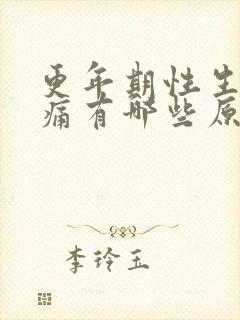 更年期性生
痛有哪些原
李玲玉